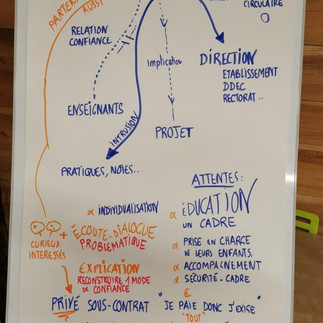 PARTENA
AUSSI
CIRCULAIRE
RELATION
CONFIANCE
implication
DIRECTION
ETABLISSEMENT
DDEC
RECTORAT..
ENSEIGNANTS
INTRUSION
PROJET
PRATIQUES, NOTES..
ATTENTES:
INDIVIDUALISATION
ÉDUCATION
UN CADRE
ÉCOUTE-DIALOGUE
PROBLÉMATIQUE
CURIEUX
INTERESSÉS
PRISE EN CHARGE
DE LEURS ENFANTS.
ACCOMPAGNEMENT
SÉCURITÉ-CADRE
EXPLICATION
RECONSTRUIRE 1 MODE
DE CONFIANCE
€
PRIVÉ SOUS-CONTRAT
"JE PAIE DONC J'EXIGE"
"TOUT"